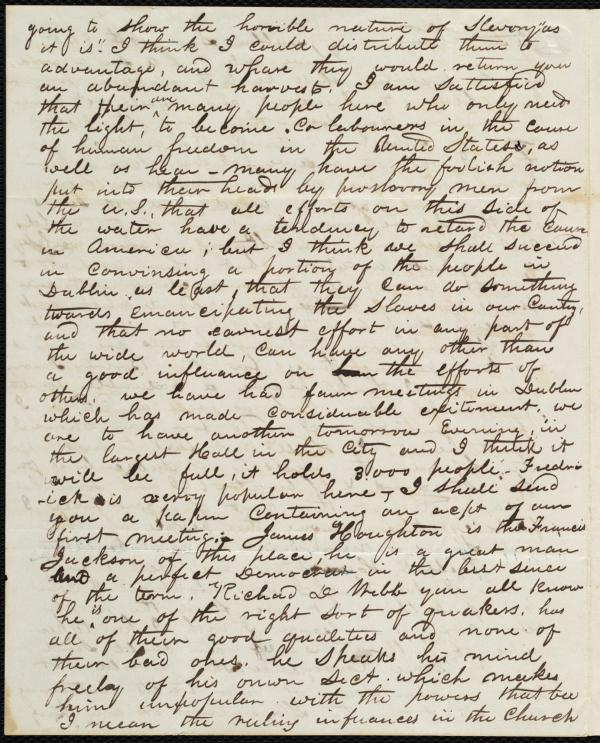 going to show the horrible nature of Slevory "as
it is". I think I could distribute them to
advantage, and whare they would return you
an abundant harvest. I am sattesfied
that their are many people here who only need
the light, to become Co labourers in the cause
of human freedom in the United States, as
well as hear - many have the foolish notion
put into their heads by proslavory men from
the U.S., that all efforts on this side of
the water have a tendency to retard the cause
in America; but I think we shall succeed
in convinsing a portion of the people in
Dublin as least, that they can do something
towards emancipating the slaves in our Cuntry,
and that no earnest effort in any part of
the wide world, can have any other than
a good infleuance on the efforts of
others. we have had fawr meetings in Dublin
which has made considerable exitement. we
are to have another tomorrow Evening, in
the largest Hall in the City and I think it
will be full, it holds 3000 people. - Fredri
-ick is verry popular here - I shall send
you a paper containing an acpt of our
first meeting. James Houghton is the Francis
Jackson of this place, he is a great man
and a perfect Democrat in the best since
of the term. Richard D Webb you all know
he is one of the right sort of quakers. has
all of their good qualities and none of
their bad ones. he speaks his mind
freely of his onwn sect. which meekes
him unpopular with the powers that bee
I mean the ruling infuances in the Church